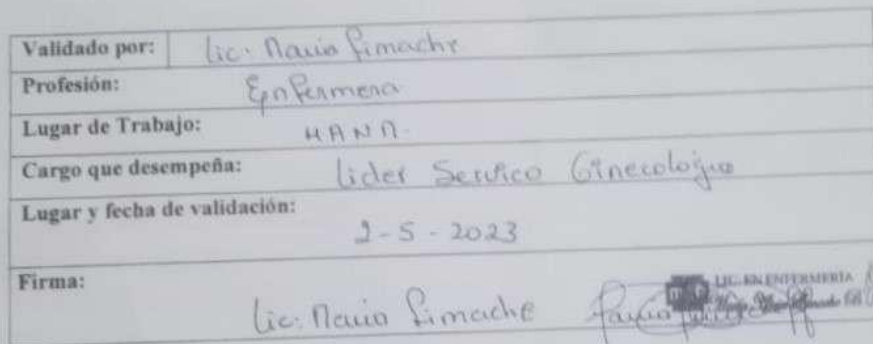 Validado por: Lic. Maria Simache
Profesión: Enfermera
Lugar de Trabajo: HANM.
Cargo que desempeña: Lider Servico Ginecologia
Lugar y fecha de validación:
2-5-2023
Firma:
Lic. Maria Simache
LIC. EN ENFERMERIA